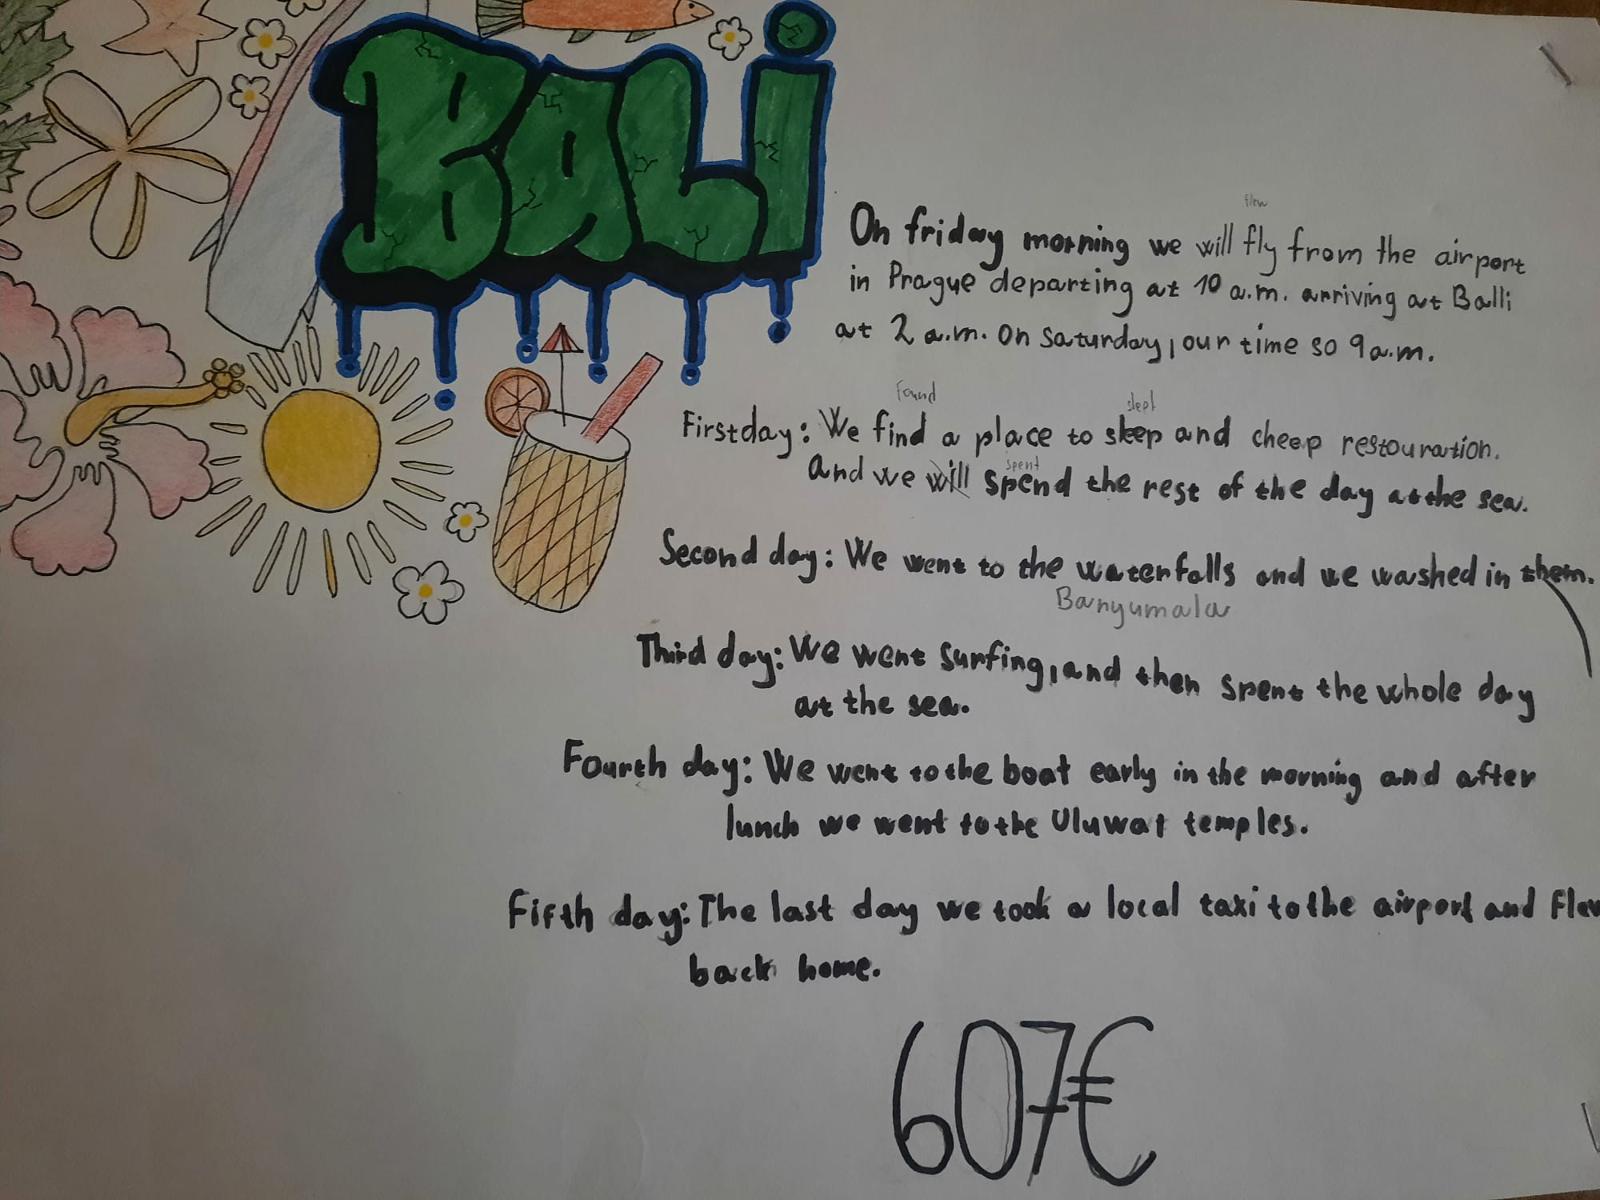 BALi
flew
On friday morning we will fly from the airport
in Prague departing at 10 a.m. arriving at Balli
at 2 a.m. on saturday, our time so 9 a.m.
Found slept
First day: We find a place to sleep and cheep restouration.
spent
and we will spend the rest of the day at the sea.
Second day: We went to the waterfalls and we washed in them.
Banyumala
Third day: We went surfing, and then spent the whole day
at the sea.
Fourth day: We went to the boat early in the morning and after
lunch we went to the Uluwat temples.
Fifth day: The last day we took a local taxi to the airport and Flew
back home.
607€